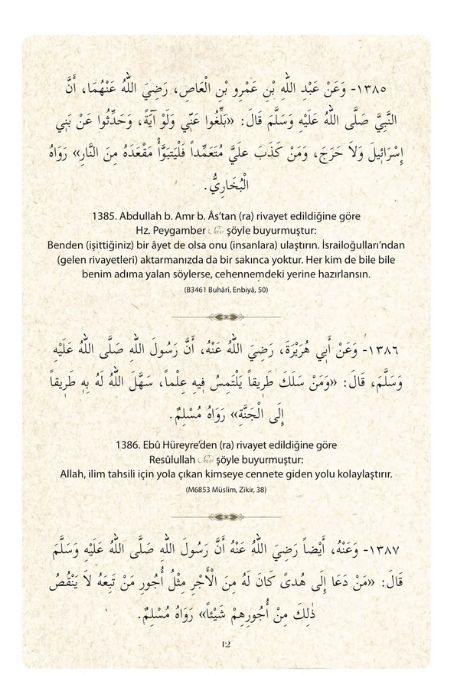 ١٣٨٥- وَعَنْ عَبْدِ اللهِ بْنِ عَمْرِو بْنِ الْعَاصِ، رَضِيَ اللهُ عَنْهُمَا، أَنَّ
النَّبِيَّ صَلَّى اللهُ عَلَيْهِ وَسَلَّمَ قَالَ: «بَلِّغُوا عَنِّي وَلَوْ آيَةً، وَحَدِّثُوا عَنْ بَنِي
إِسْرَائِيلَ وَلَا حَرَجَ، وَمَنْ كَذَبَ عَلَيَّ مُتَعَمِّداً فَلْيَتَبَوَّأْ مَقْعَدَهُ مِنَ النَّارِ» رَوَاهُ
الْبُخَارِيُّ.
1385. Abdullah b. Amr b. Âs’tan (ra) rivayet edildiğine göre
Hz. Peygamber şöyle buyurmuştur:
Benden (işittiğiniz) bir âyet de olsa onu (insanlara) ulaştırın. İsrailoğulları’ndan
(gelen rivayetleri) aktarmanızda da bir sakınca yoktur. Her kim de bile bile
benim adıma yalan söylerse, cehennemdeki yerine hazırlansın.
(B3461 Buhârî, Enbiyâ, 50)
١٣٨٦- وَعَنْ أَبِي هُرَيْرَةَ، رَضِيَ اللهُ عَنْهُ، أَنَّ رَسُولَ اللهِ صَلَّى اللهُ عَلَيْهِ
وَسَلَّمَ، قَالَ: «وَمَنْ سَلَكَ طَرِيقاً يَلْتَمِسُ فِيهِ عِلْماً، سَهَّلَ اللهُ لَهُ بِهِ طَرِيقاً
إِلَى الْجَنَّةِ» رَوَاهُ مُسْلِمٌ.
1386. Ebû Hüreyre’den (ra) rivayet edildiğine göre
Resûlullah şöyle buyurmuştur:
Allah, ilim tahsili için yola çıkan kimseye cennete giden yolu kolaylaştırır.
(M6853 Müslim, Zikir, 38)
١٣٨٧- وَعَنْهُ، أَيْضاً رَضِيَ اللهُ عَنْهُ أَنَّ رَسُولَ اللهِ صَلَّى اللهُ عَلَيْهِ وَسَلَّمَ
قَالَ: «مَنْ دَعَا إِلَى هُدًى كَانَ لَهُ مِنَ الْأَجْرِ مِثْلُ أُجُورِ مَنْ تَبِعَهُ لَا يَنْقُصُ
ذٰلِكَ مِنْ أُجُورِهِمْ شَيْئاً» رَوَاهُ مُسْلِمٌ.
12